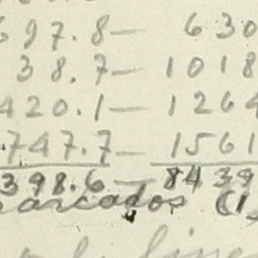 697.8— 630
38.7— 1018
420.1— 1264
747.7— 1561
398.6— 8439
arcados (1,